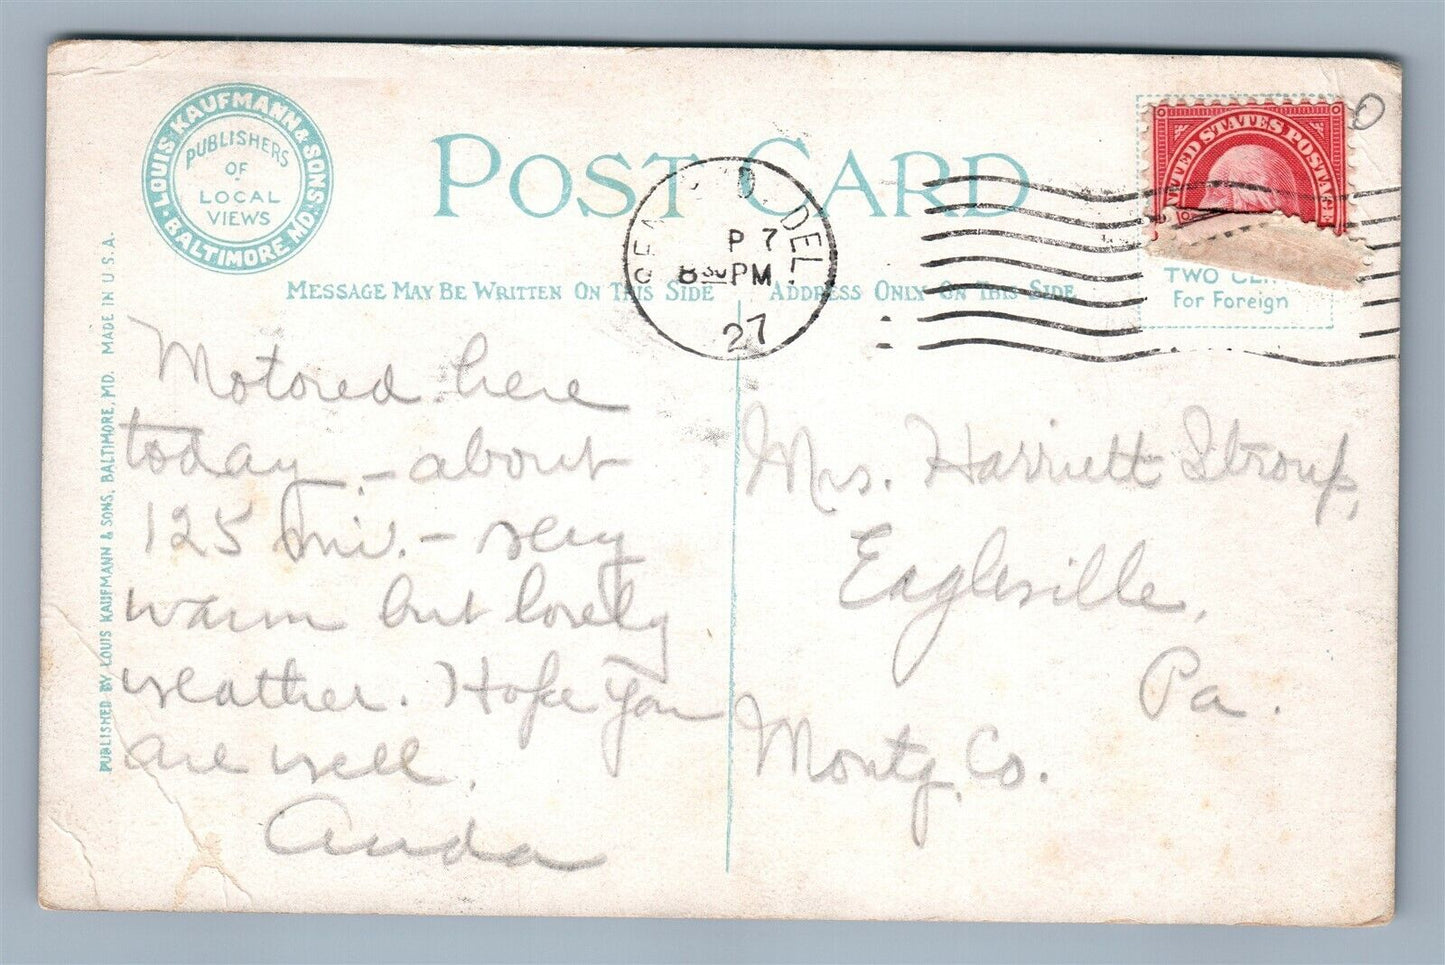 LOUIS KAUFMANN & SONS
BALTIMORE MD.
PUBLISHERS
OF
LOCAL
VIEWS
POST CARD
MESSAGE MAY BE WRITTEN ON THIS SIDE
ADDRESS ONLY ON THIS SIDE
UNITED STATES POSTAGE
TWO
For Foreign
DEL.
P 7
8 30 PM
27
PUBLISHED BY LOUIS KAUFMANN & SONS, BALTIMORE, MD. MADE IN U.S.A.
Motored here
today - about
125 mi. - very
warm but lovely
weather. Hope you
are well.
Mrs. Harriett Stroup,
Eagleville,
Pa.
Montg. Co.